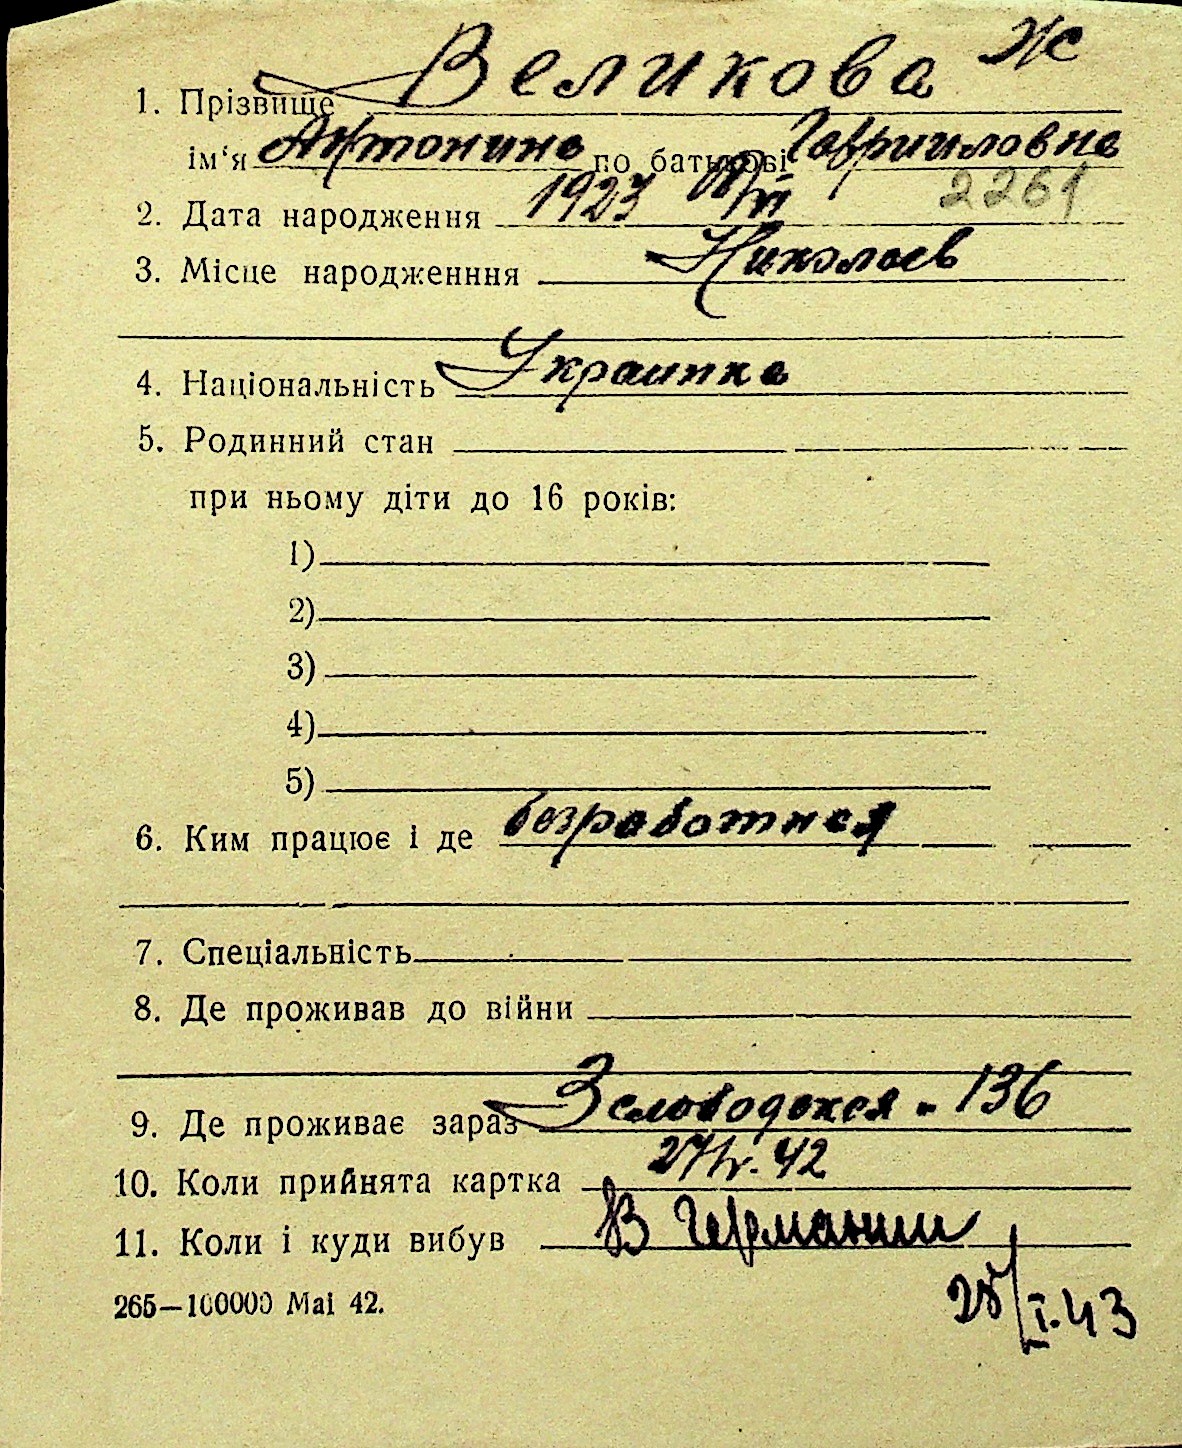 1. Прізвище Великова Ж
ім‘я Антонина по батькові Гаврииловна
2. Дата народження 1923 VI 2261
3. Місце народженння Николаев
4. Національність Украинка
5. Родинний стан
при ньому діти до 16 років:
1)
2)
3)
4)
5)
6. Ким працює і де безработная
7. Спеціальність
8. Де проживав до війни
9. Де проживає зараз 3 Слободская - 136
10. Коли прийнята картка 42
11. Коли і куди вибув В Германии
265—100000 Mai 42.
I.43